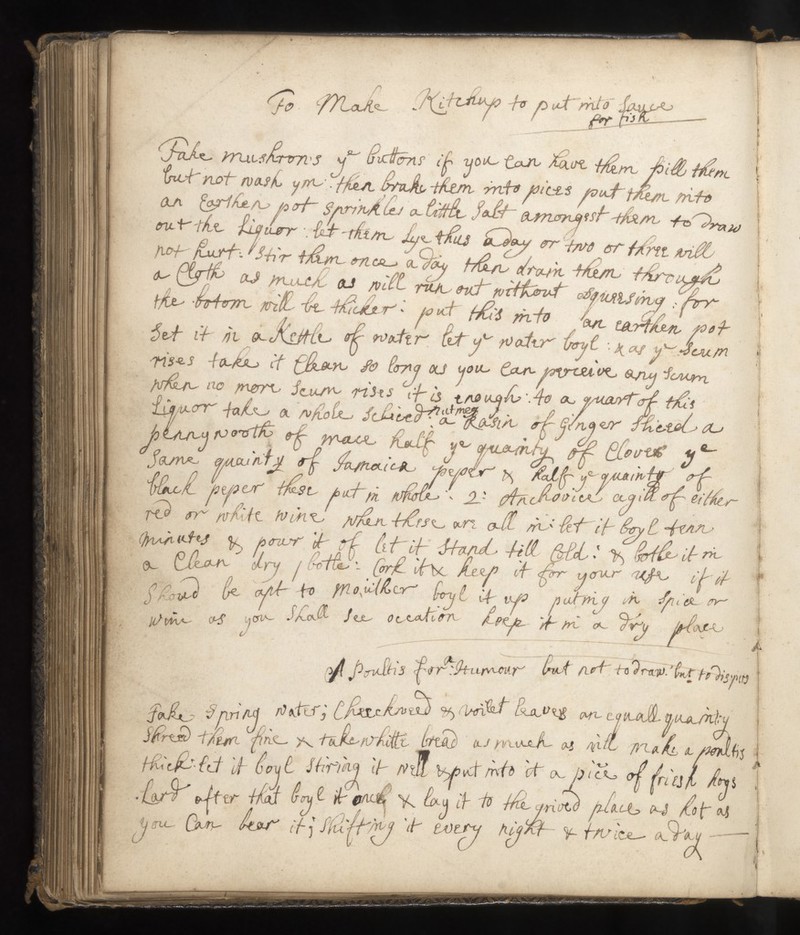 To Make Kitchup to put into Sauce
for fish
Take mushrons ye buttons if you Can have them pill them
but not wash ym: then brake them into pices put them into
an Earthen pot sprinkles a little Salt amongsst them to draw
out the Liquor: let them Lye thus a day or two or three will
not hurt: Stir them once a day then drain them through
a Cloth as much as will run out without Squessing: for
the botom will be thicker: put this into an earthen pot
Set it in a Kettle of water let ye water boyl: & as ye Scum
rises take it Clean so long as you Can perceive any Scum
when no more Scum rises it is enough: to a quart of this
Liquor take a whole Scliced nutmeg a Rasin of Ginger Sliced a
pennywooth of mace half ye quainty of Cloves ye
Same quainty of Jamaica peper & half ye quainty of
black peper these put in whole: 2: Anchovice a gill of either
red or white wine when these are all in: let it boyl tenn
minutes & pour it of let it Stand till Cold: & botle it in
a Clean dry botle: Cork it & keep it for your use if it
Shoud be apt to moulther boyl it up puting in Spice or
wine as you Shall See occation keep it in a dry place
A Poultis for a Humour but not to draw but to dispers
Take Spring water; Chieckweed & voilet leaves an equall quainty
Shreed them fine & take whitte bread as much as will make a poultis
thick: let it boyl Stiring it well & put into it a pice of friesh hogs
Lard after that boyl it & lay it to the grived place as hot as
you Can bear it; Shifting it every night & twice a day